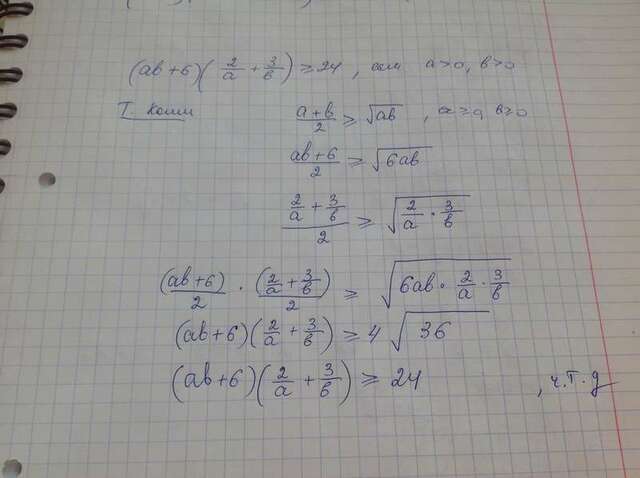 (ab+6)(2/a + 3/b) ≥ 24, если a>0, b>0
Т. Коши a+b/2 ≥ √ab, a≥0, b≥0
ab+6/2 ≥ √6ab
2/a + 3/b/2 ≥ √2/a · 3/b
(ab+6)/2 · (2/a + 3/b)/2 ≥ √6ab · 2/a · 3/b
(ab+6)(2/a + 3/b) ≥ 4√36
(ab+6)(2/a + 3/b) ≥ 24, ч.т.д